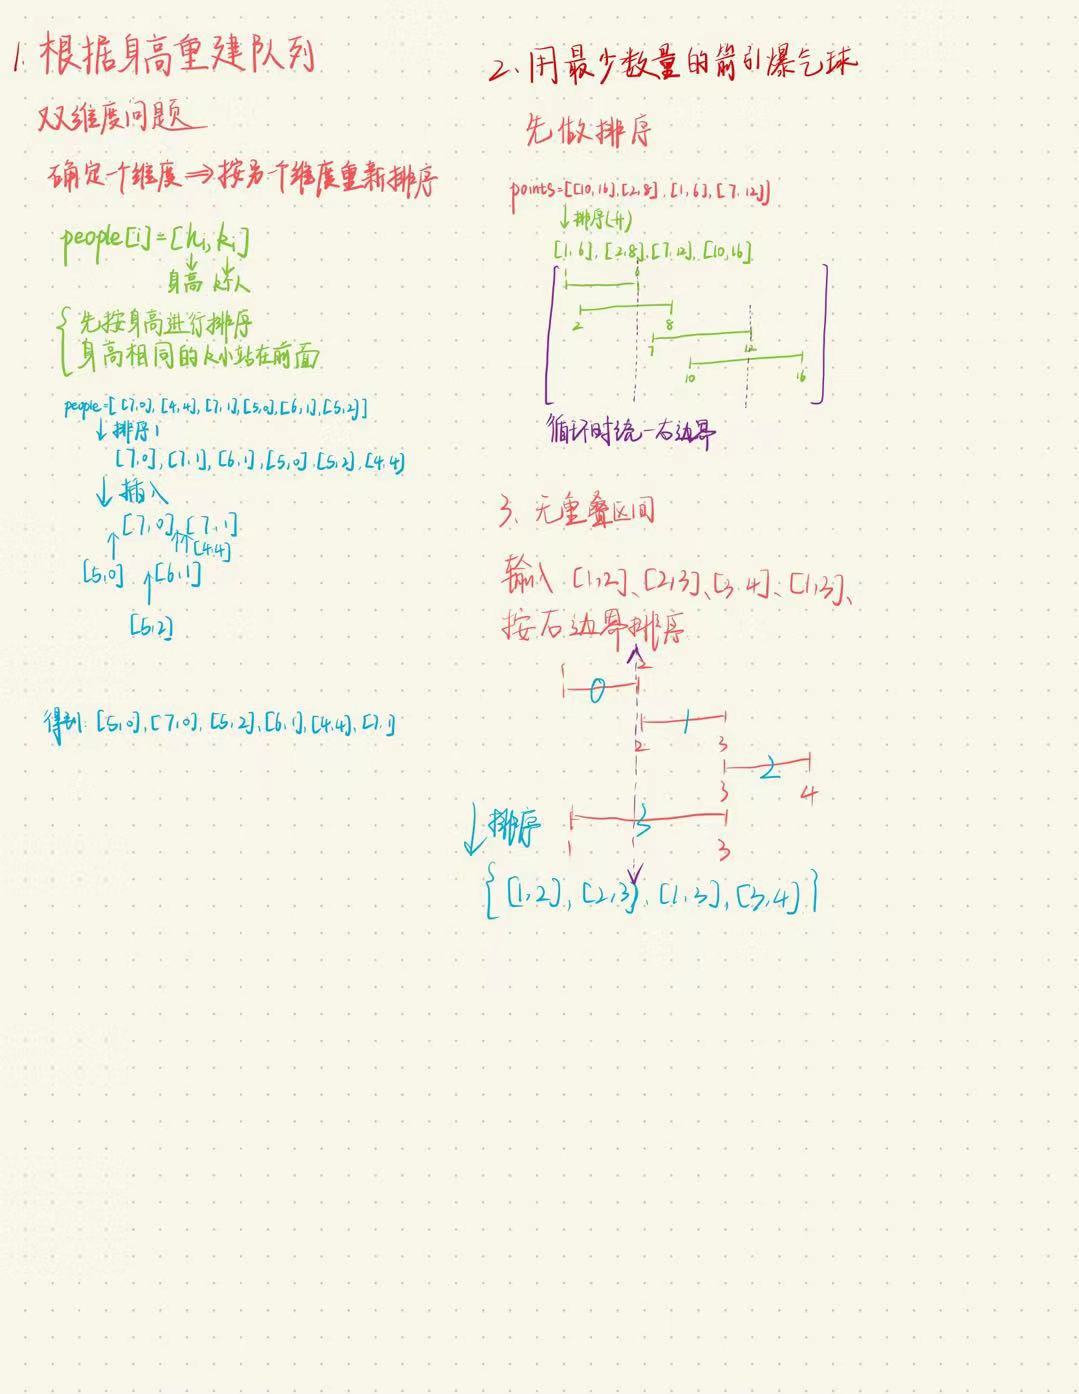 1. 根据身高重建队列
双维度问题
确定一个维度 ⇒ 按另一个维度重新排序
people[i]=[hi, ki]
身高 k个人
先按身高进行排序
身高相同的k小站在前面
people=[[7,0], [4,4], [7,1], [5,0], [6,1], [5,2]]
↓ 排序
[7,0], [7,1], [6,1], [5,0], [5,2], [4,4]
↓ 插入
[7,0] [7,1]
[4,4]
[5,0] [6,1]
[5,2]
得到: [5,0], [7,0], [5,2], [6,1], [4,4], [7,1]
2、用最少数量的箭引爆气球
先做排序
points=[[10,16], [2,8], [1,6], [7,12]]
↓ 排序(升)
[1,6], [2,8], [7,12], [10,16]
1 6
2 8
7 12
10 16
循环时统一右边界
3、无重叠区间
输入 [1,2]、[2,3]、[3,4]、[1,3]、
按右边界排序
1 0 2
2 1 3
3 2 4
↓ 排序
1 3 3
{[1,2], [2,3], [1,3], [3,4]}